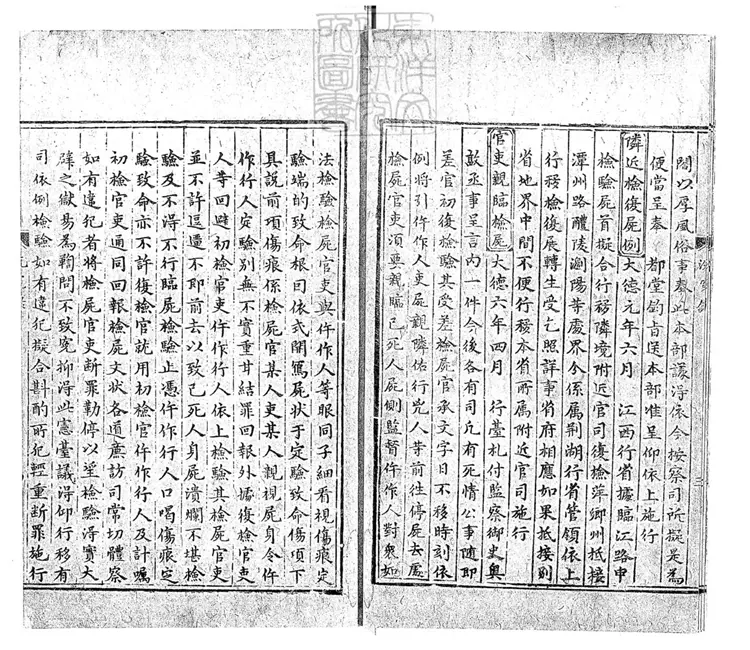 間以厚風俗事奉此本部議得依今按察司所擬是為
便當呈奉　都堂鈞旨送本部惟呈仰依上施行
隣近檢復屍例　大德元年六月　江西行省據臨江路申
檢驗屍首擬合行移隣境附近官司復檢萍鄉州抵接
潭州路醴陵瀏陽等處界分係属荆湖行省管領依上
行移檢復展轉生受乞照詳事省府相應如果抵接别
省地界中間不便行移本省所属附近官司施行
官吏親臨檢屍　大德六年四月　行臺札付監察御史奥
敦丞事呈言内一件今後各有司凡有死情公事随即
差官初復檢驗其受差檢屍官承文字日不移時刻依
例將引仵作人吏屍親隣佑行兇人等前徃停屍去處
檢屍官吏須要親臨已死人屍側監督仵作人對衆如
法檢驗檢屍官吏與仵作人等眼同子細看視傷痕定
驗端的致命根因依式開寫屍狀于定驗致命傷項下
具說前項傷痕係檢屍官某人吏某人親視屍身令仵
作行人定驗别無不實重甘結罪回報外據復檢官吏
人等回避初檢官吏仵作行人依上檢驗其檢屍官吏
並不許逗遛不即前去以致已死人身屍潰爛不堪檢
驗及不得不行臨屍檢驗止憑仵作行人口喝傷痕定
驗致命亦不許復檢官就用初檢官仵作行人及計囑
初檢官吏通同回報檢屍文狀各道廉訪司常切體察
如有違犯者將檢屍官吏断罪勒停以望檢驗得實大
辟之獄易為鞫問不致寃抑得此憲臺議得仰行移有
司依例檢驗如有違犯擬合斟酌所犯輕重断罪施行